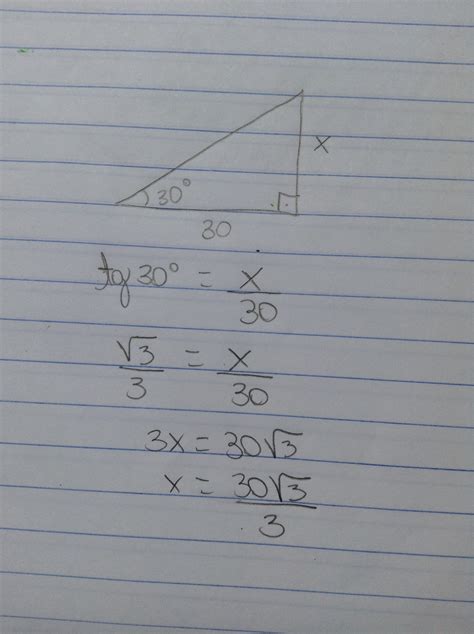 x
30°
30
tg 30° = x/30
√3/3 = x/30
3x = 30√3
x = 30√3/3